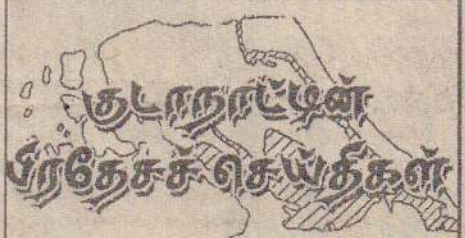 குடாநாட்டின்
பிரதேசச் செய்திகள்